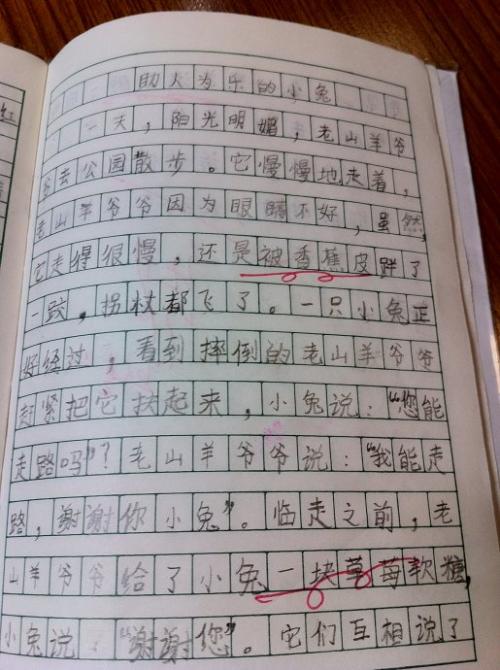 助人为乐的小兔
一天，阳光明媚，老山羊爷
爷去公园散步。它慢慢地走着，
老山羊爷爷因为眼睛不好，虽然，
它走得很慢，还是被香蕉皮跘了
一跤，拐杖都飞了。一只小兔正
好经过，看到摔倒的老山羊爷爷
赶紧把它扶起来，小兔说：“您能
走路吗”？老山羊爷爷说：“我能走
路，谢谢你小兔”。临走之前，老
山羊爷爷给了小兔一块草莓软糖，
小兔说：“谢谢您”。它们互相说了
红